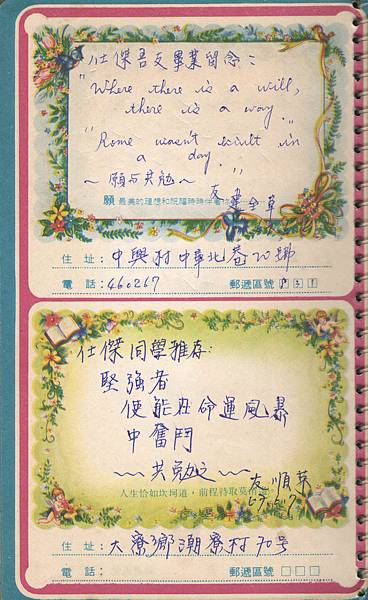 仕傑吾友畢業留念：
"Where there is a will,
there is a way."
"Rome wasn't built in
a day."
～願与共勉～
友 建全 草
願最美的理想和祝福時時伴著
住 址：中興村中華北巷20號
電 話：460267 郵遞區號 831
仕傑同學雅存：
堅強者
便能在命運風暴
中奮鬥
～～共勉之～～
友 順草
人生恰如坎坷道，前程待取莫
住 址：大寮鄉潮寮村70号
電 話： 郵遞區號